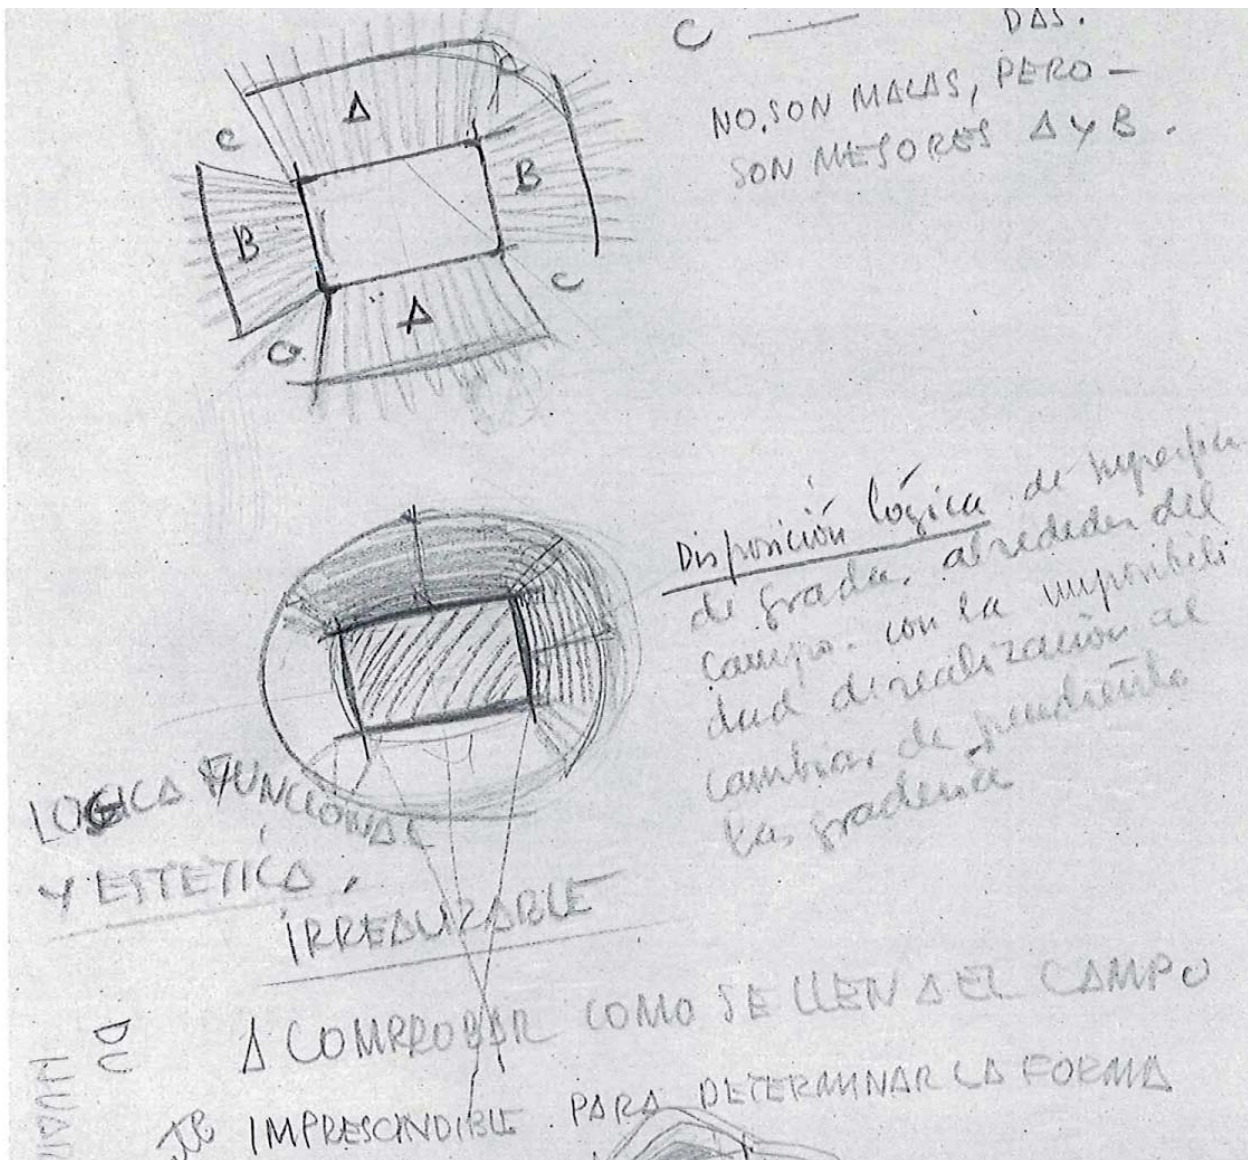 C — DAS.
NO SON MALAS, PERO —
SON MEJORES A Y B.
C
A
C
B
C
B
A
C
Disposición lógica de superficie
de grada, alrededor del
campo. con la imposibili
dad de realización al
cambiar de pendiente
las gradería
LOGICA FUNCIONAL
Y ESTETICA,
IRREALIZABLE
A COMPROBAR COMO SE LLENA EL CAMPO
IMPRESCINDIBLE PARA DETERMINAR LA FORMA